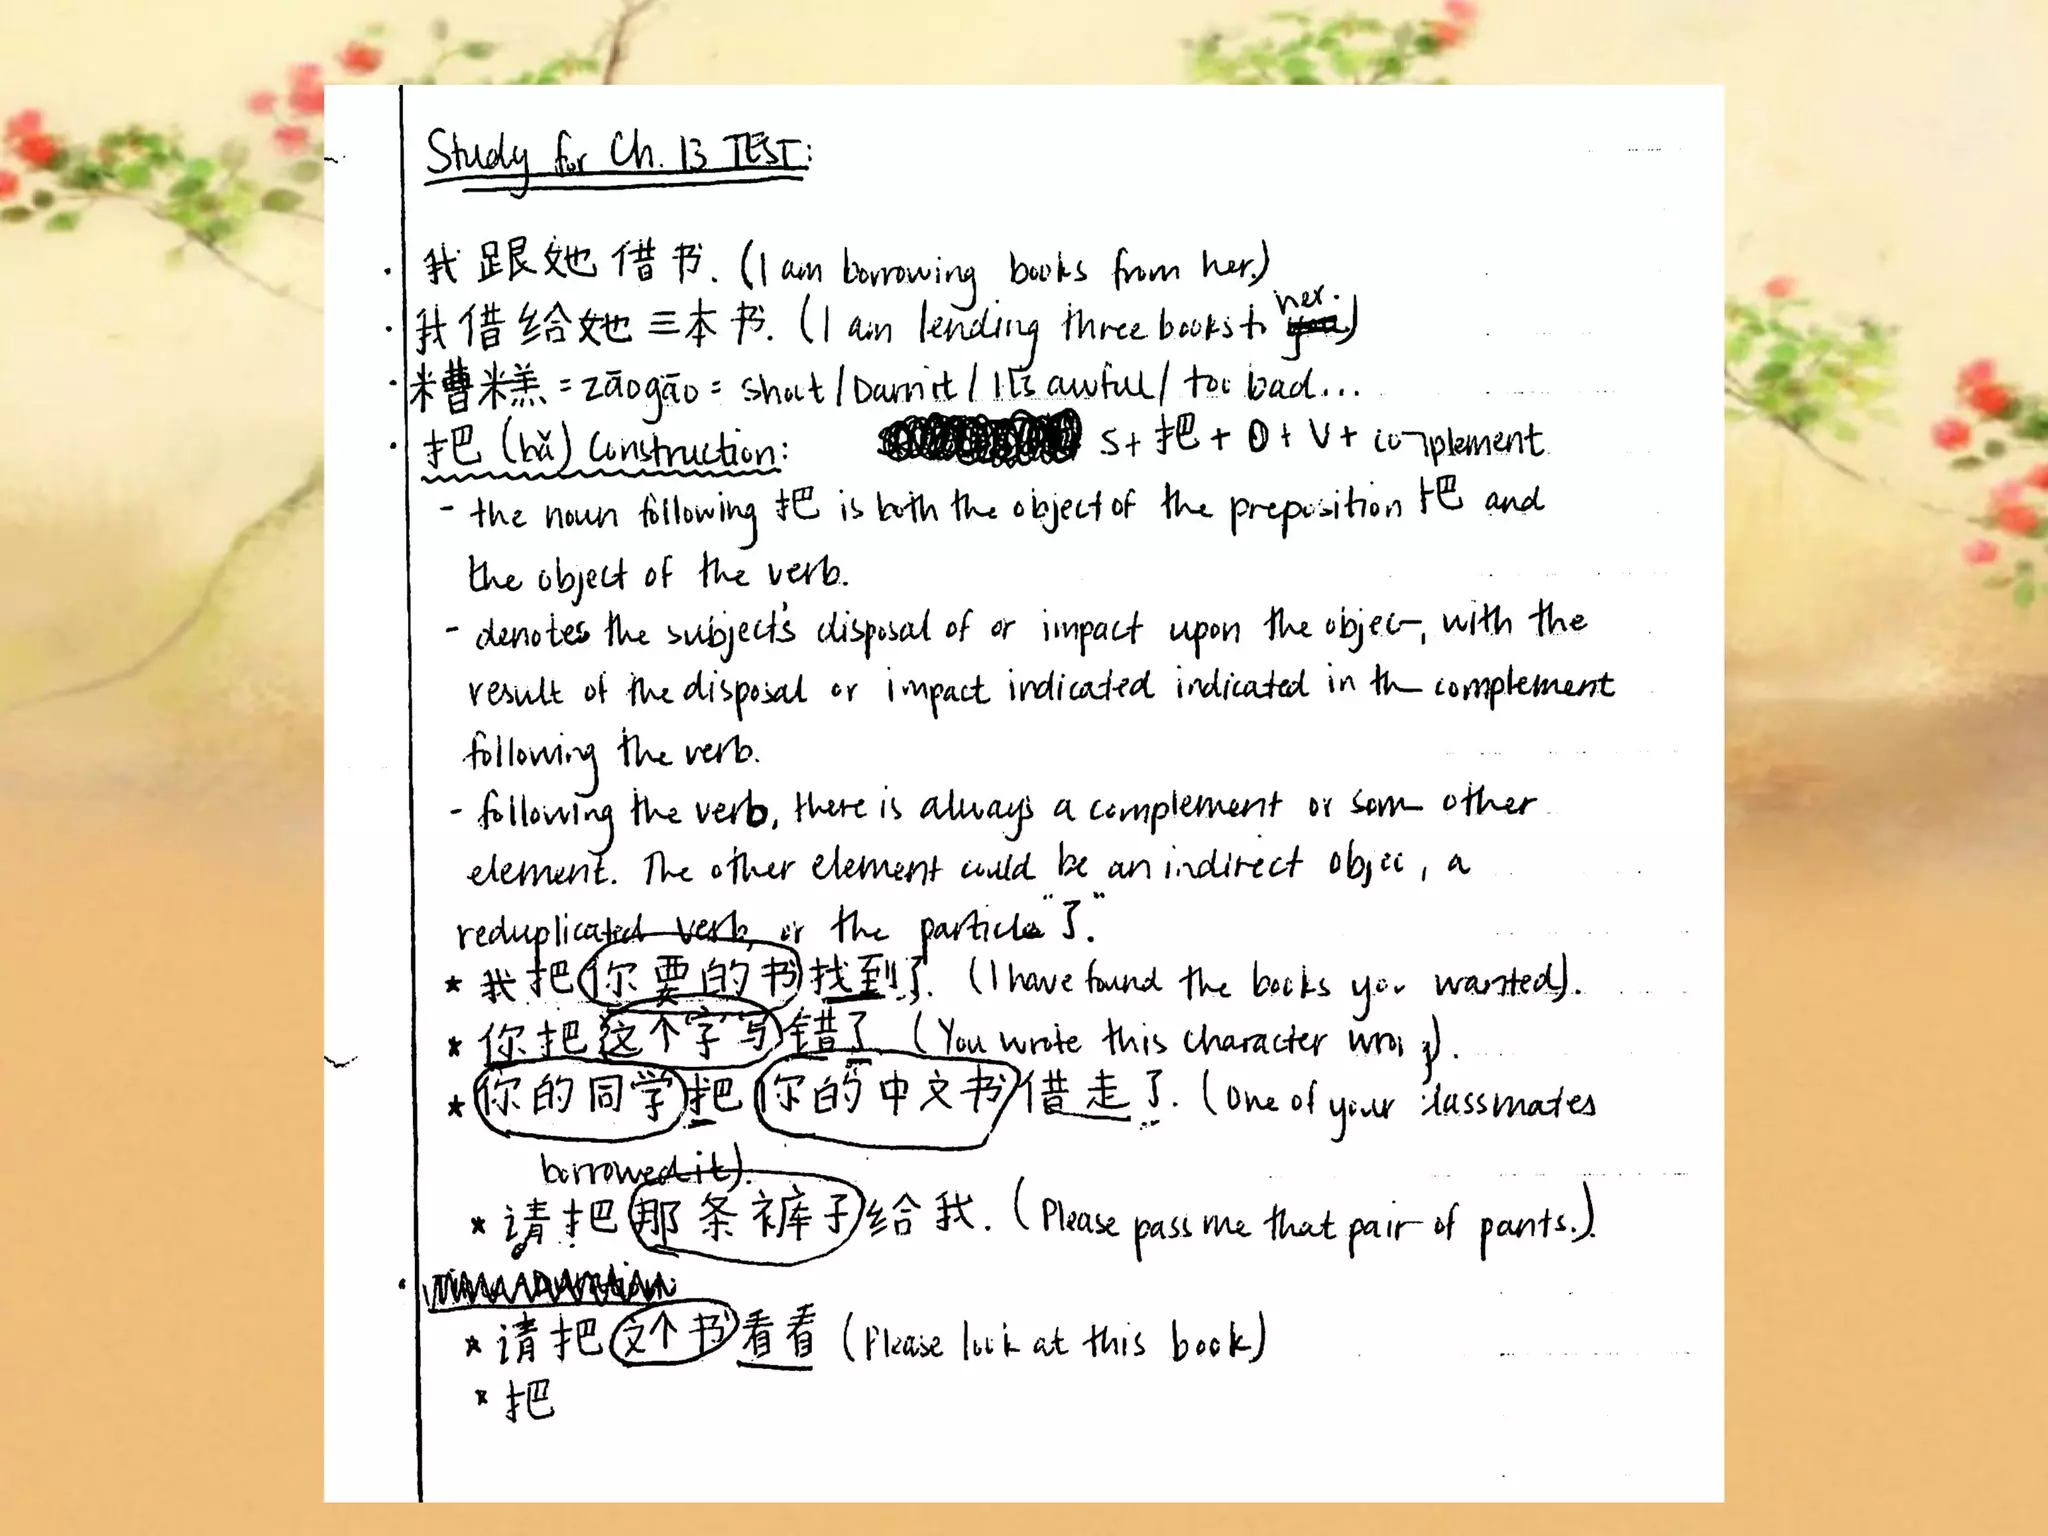 Study for Ch. 13 TEST:
· 我跟她借书. (I am borrowing books from her.)
· 我借给她三本书. (I am lending three books to her.)
· 糟糕 = zāogāo = shoot/Darn it/It's awful/too bad...
· 把 (bǎ) Construction: S + 把 + O + V + complement
- the noun following 把 is both the object of the preposition 把 and
the object of the verb.
- denotes the subject's disposal of or impact upon the object, with the
result of the disposal or impact indicated indicated in the complement
following the verb.
- following the verb, there is always a complement or some other
element. The other element could be an indirect object, a
reduplicated verb, or the particle "了".
* 我把你要的书找到了. (I have found the books you wanted).
* 你把这个字写错了 (You wrote this character wrong).
* 你的同学把你的中文书借走了. (One of your classmates
borrowed it).
* 请把那条裤子给我. (Please pass me that pair of pants.)
* 请把这个书看看 (Please look at this book)
* 把